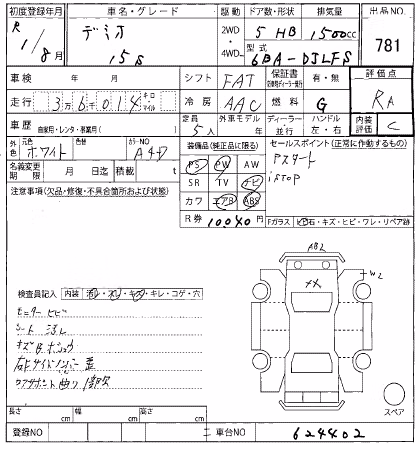 初度登録年月 車名・グレード 駆動 ドア数・形状 排気量 出品NO.
R 1/8月 デミオ 15S 2WD・4WD 5 HB 1500cc 781
型式 6BA-DJLFS
車検 年 月 シフト FAT 保証書 有・無 評価点
走行 36014 キロ マイル 冷房 AAC 燃料 G RA
車歴 自家用・レンタ・事業用( ) 定員 5人 外車モデル 年 ディーラー・並行 ハンドル 左・右 内装評価 C
外色 元色 ホワイト カラーNO A4D 装備品(純正品に限る) セールスポイント(正常に作動するもの)
名義変更期限 月 日迄 積載 t PS PW AW アスタート
注意事項(欠品・修復・不具合箇所および状態) SR TV ナビ iSTOP
カワ エアB ABS
R券 10040円 Fガラス ヒ石・キズ・ヒビ・ワレ・リペア跡
AB2
メメ W2
検査員記入 内装 汚レ・スレ・キズ・キレ・コゲ・穴
モニターヒビ
シート汚レ
スペア
長さ cm 幅 cm 高さ cm
登録NO 車台NO 624402